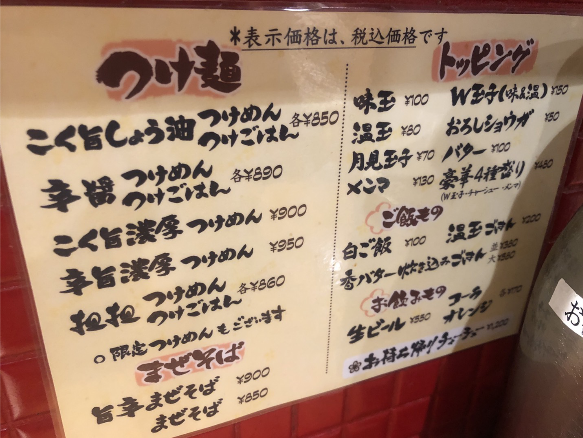 *表示価格は、税込価格です
つけ麺
こく旨しょう油 つけめん つけごはん 各¥850
辛醤 つけめん つけごはん 各¥890
こく旨濃厚つけめん ¥900
辛旨濃厚つけめん ¥950
担担 つけめん つけごはん 各¥860
○限定つけめんもございます
まぜそば
旨辛まぜそば ¥900
まぜそば ¥850
トッピング
味玉 ¥100
温玉 ¥80
月見玉子 ¥70
メンマ ¥130
W玉子(味&温) ¥150
おろしショウガ ¥50
バター ¥100
豪華4種盛り ¥480
(W玉子・チャーシュー・メンマ)
ご飯もの
白ご飯 ¥100
温玉ごはん ¥200
香バター炊き込みごはん 並¥380 大¥580
お飲みもの
生ビール ¥550
コーラ オレンジ 各¥170
お持ち帰りチャーチュー